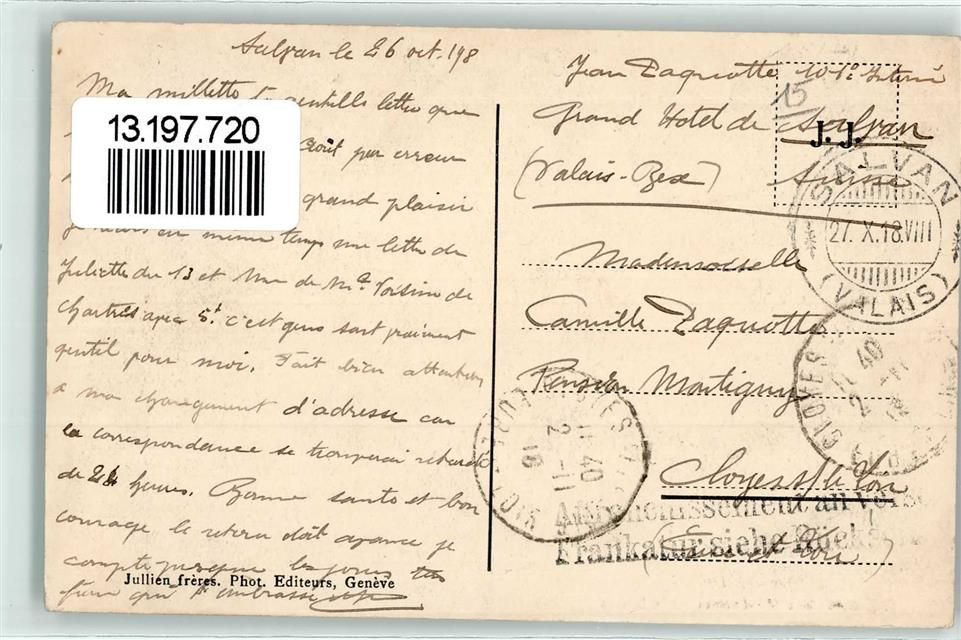 Salvan le 26 oct. 198
Ma millette ta gentille lettre que
13.197.720
par erreur
grand plaisir
en même temps une lettre de
Juliette du 13 et une de Voisine de
Chartres avec 5f. c'est gens sont vraiment
gentil pour moi. Fait bien attention
a mon changement d'adresse car
la correspondance se trouverai retardé
de 24 heures. Bonne santé et bon
courage le retour doit avance je
compte presque les jours
qui t'embrasse
Jullien frères. Phot. Editeurs, Genève
Jean Paquotte Interné
15
Grand Hotel de Salvan
J. J.
(Valais-Bex) Suisse
SALVAN
27. X. 18. VIII
(VALAIS)
Mademoiselle
Camille Paquotte
Pension Montigny
Cloyes s/ le Loir
(Eure et Loir)
CLOYES
11 40
2 -11
18
Affranchissement au verso
Frankatur siehe Rücks